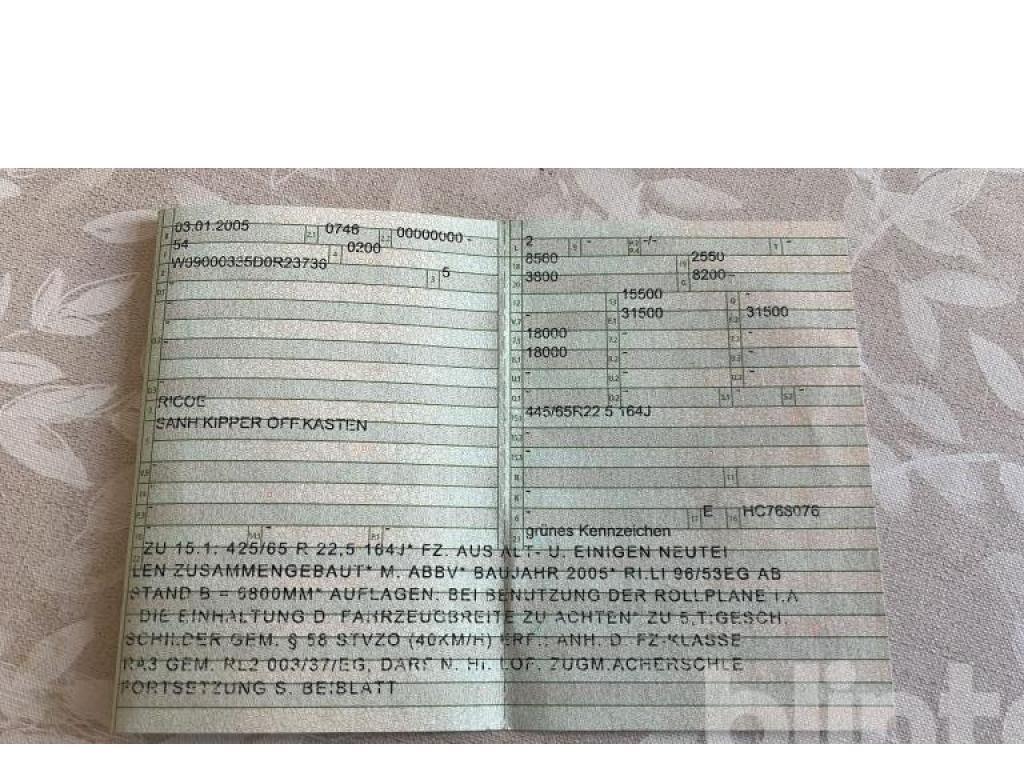 03.01.2005 0746 00000000 -
54 0200
W09000335D0R23736 5
-
-
-
RICOE
SANH KIPPER OFF.KASTEN
-
-
-
- - -
2 - -/- -
8560 2550
3800 8200 -
15500 -
31500 31500
18000 - -
18000 - -
- - -
- - - -
445/65R22 5 164J
-
-
-
-
- E HC768076
grünes Kennzeichen
ZU 15.1: 425/65 R 22,5 164J* FZ. AUS ALT- U. EINIGEN NEUTEI
LEN ZUSAMMENGEBAUT* M. ABBV* BAUJAHR 2005* RI.LI 96/53EG AB
STAND B = 6800MM* AUFLAGEN: BEI BENUTZUNG DER ROLLPLANE I.A
. DIE EINHALTUNG D. FAHRZEUGBREITE ZU ACHTEN* ZU 5,T:GESCH.
SCHILDER GEM. § 58 STVZO (40KM/H) ERF.: ANH. D. FZ-KLASSE
RA3 GEM. RL2 003/37/EG, DARF N. HI. LOF. ZUGM.ACHERSCHLE
FORTSETZUNG S. BEIBLATT
blinto